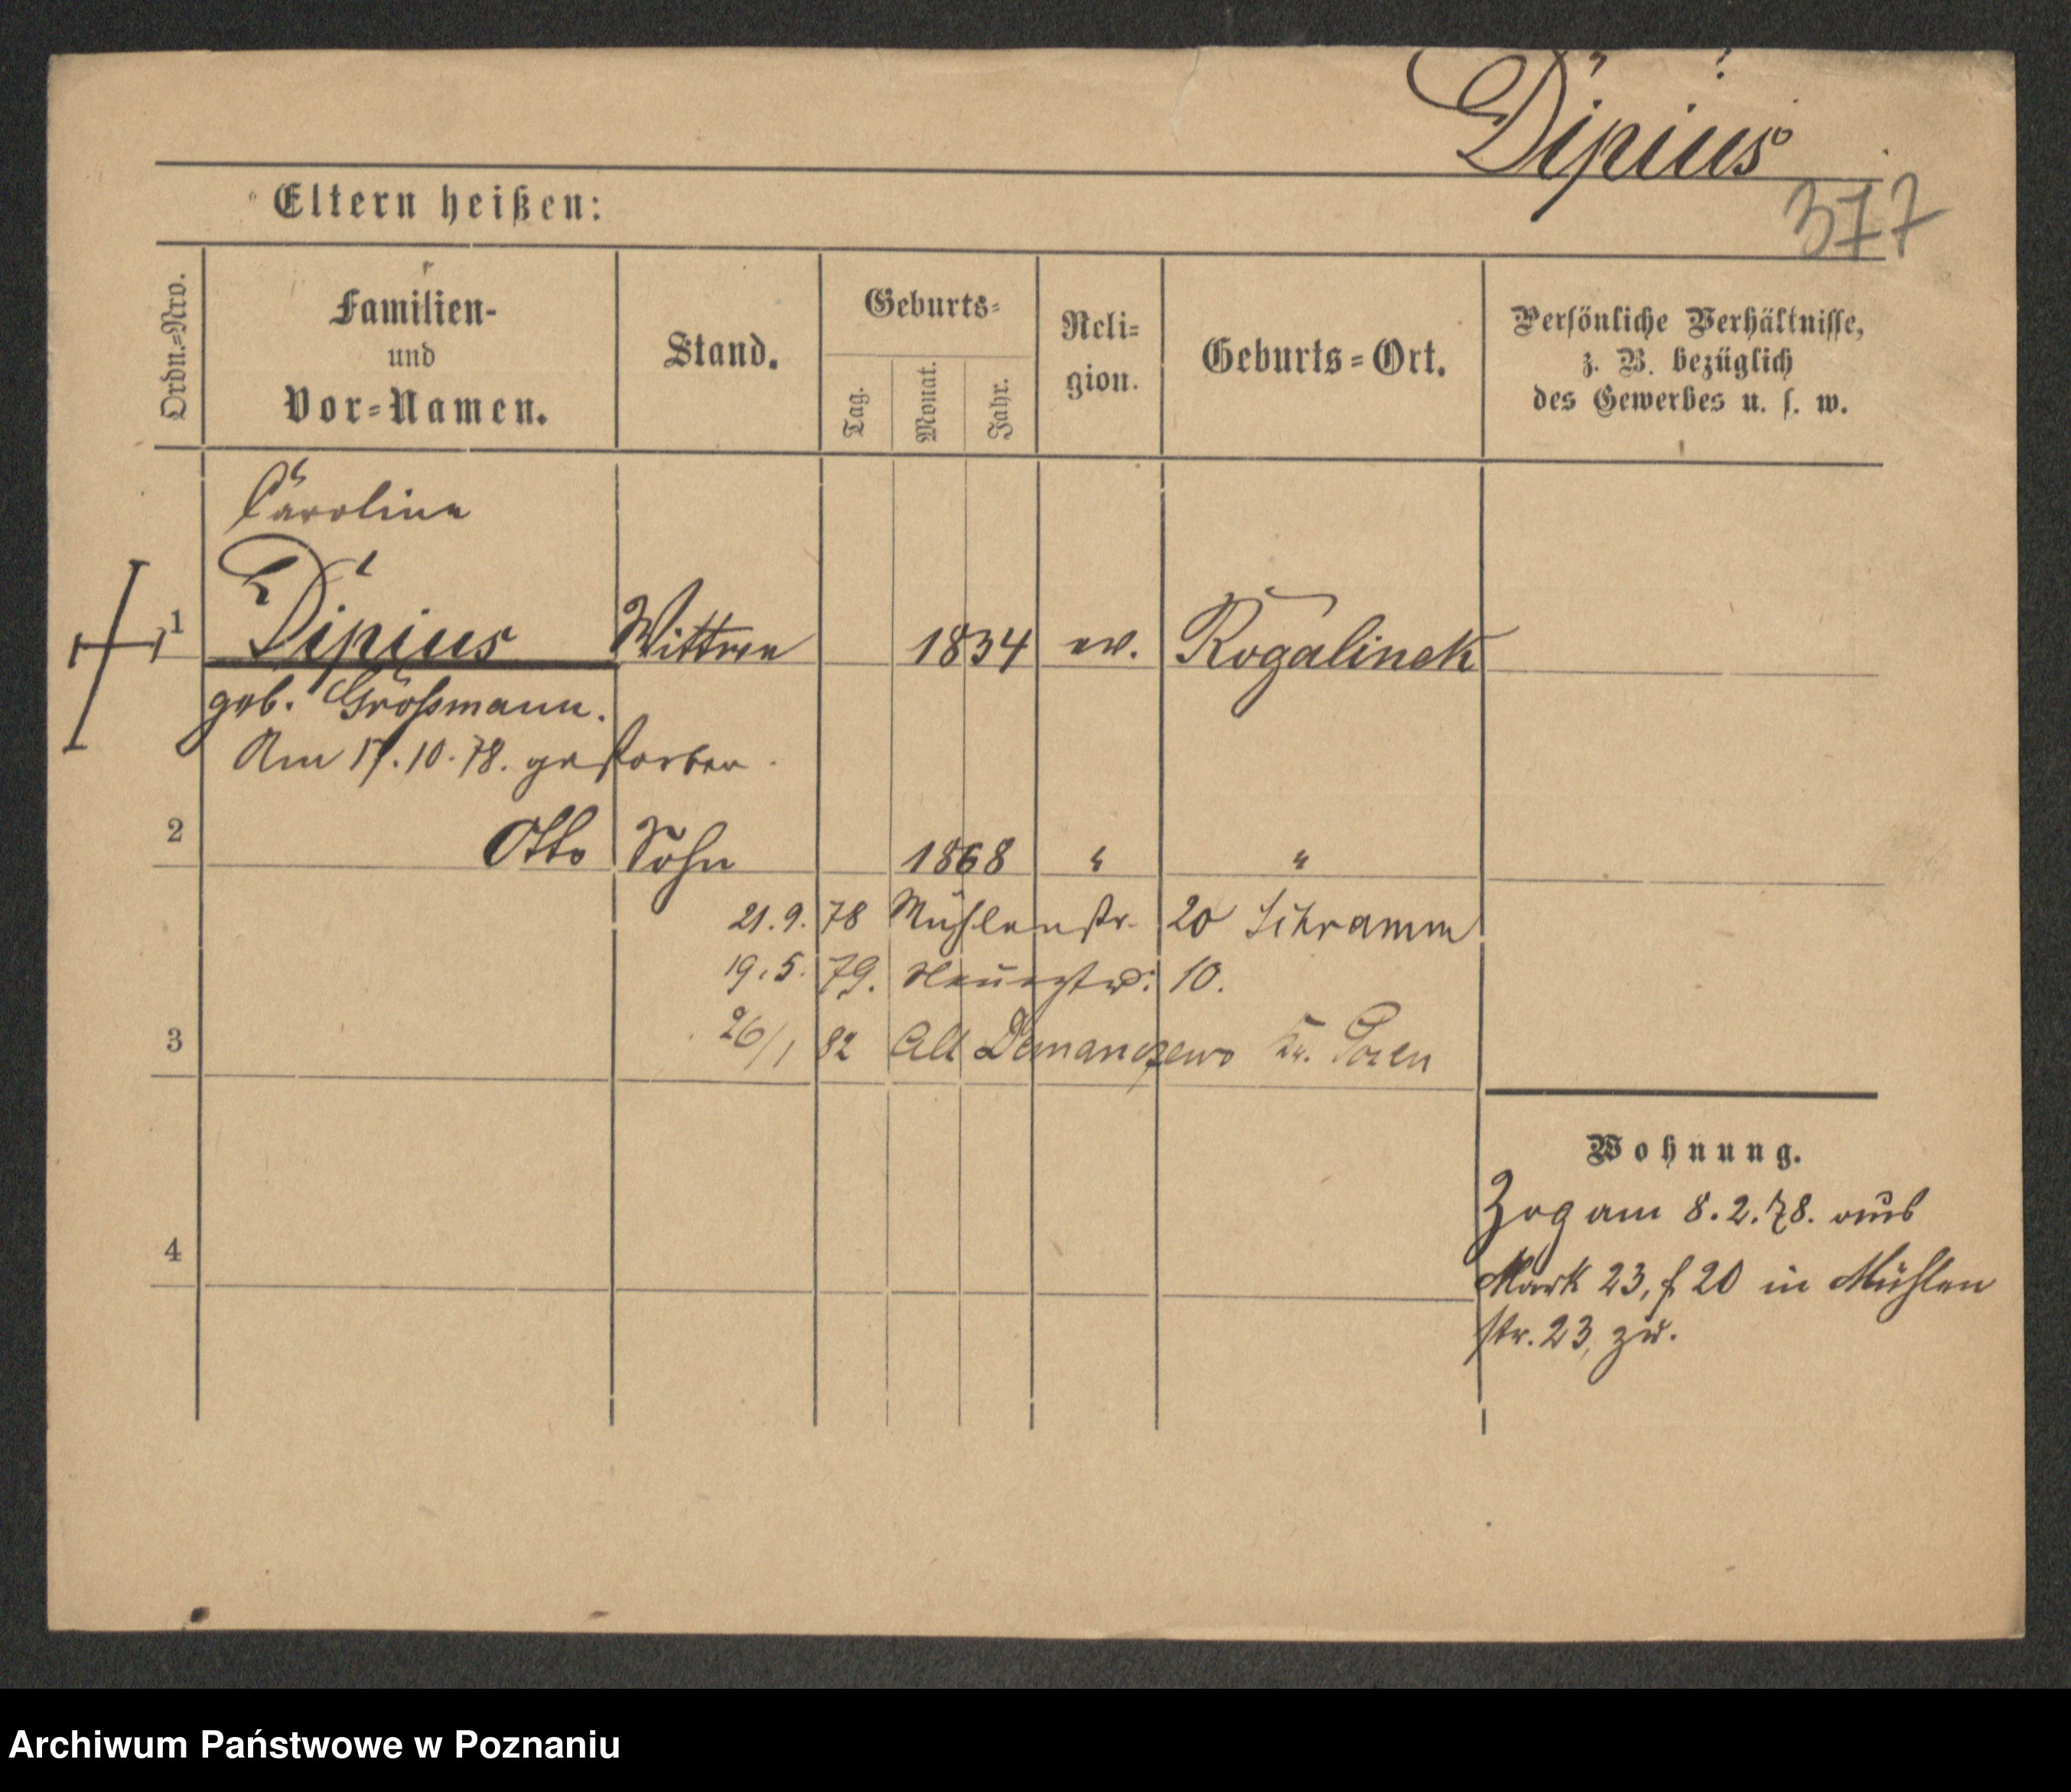 Dipius
377
Eltern heißen:
Ordn.-Nro.
Familien-
und
Vor-Namen.
Stand.
Geburts-
Tag.
Monat.
Jahr.
Reli-
gion.
Geburts-Ort.
Persönliche Verhältnisse,
z. B. bezüglich
des Gewerbes u. s. w.
Caroline
1 Dipius Wittwe 1834 ev. Rogalinek
geb. Großmann.
Am 17.10.78. gestorben.
2 Otto Sohn 1868 " "
21.9.78 Mühlenstr. 20 Schramm
19.5.79. Neuestr. 10.
3 26/1 82 Alt Demanczewo Kr. Posen
Wohnung.
Zog am 8.2.78. aus
4
Mark 23, f 20 in Mühlen
str. 23, zu.
Archiwum Państwowe w Poznaniu